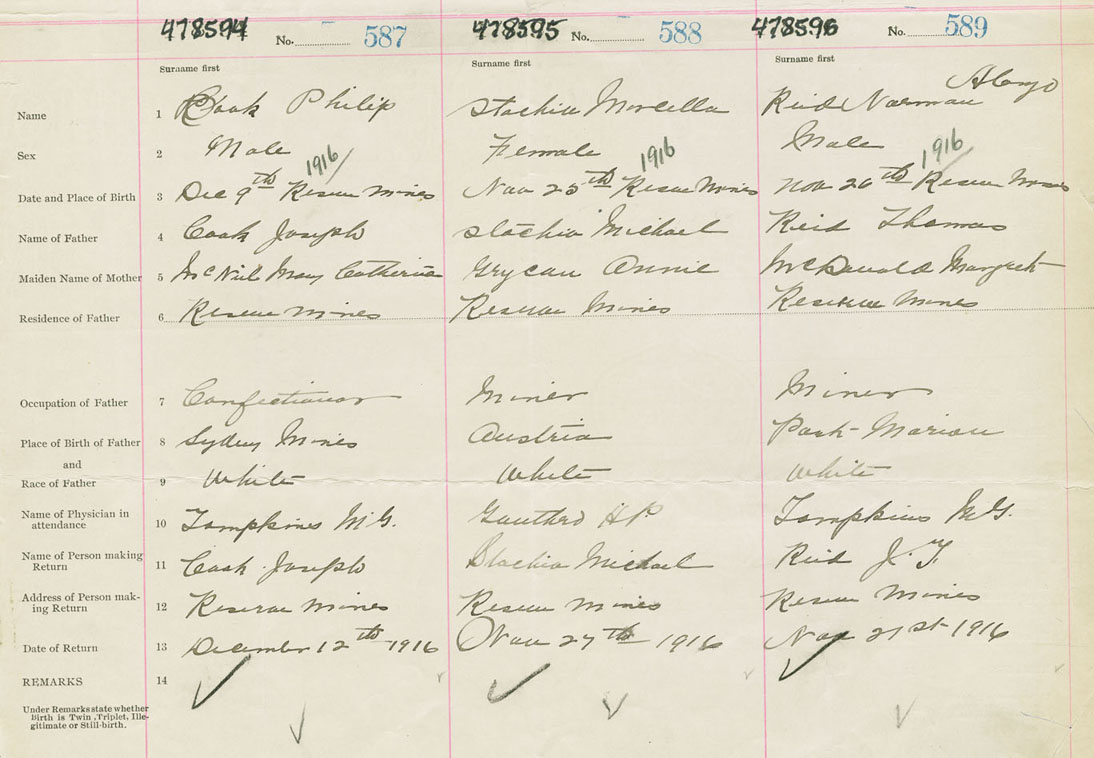 478594 No. 587 478595 No. 588 478596 No. 589
Surname first Surname first Surname first
Name 1 Cook Philip Stachiu Marcella Reid Norman Alonzo
Sex 2 Male Female Male
1916 1916 1916
Date and Place of Birth 3 Dec 9th Reserve Mines Nov 25th Reserve Mines Nov 26th Reserve Mines
Name of Father 4 Cook Joseph Michael Reid Thomas
Maiden Name of Mother 5 McNeil Mary Catherine Annie McDonald Margret
Residence of Father 6 Reserve Mines Reserve Mines Reserve Mines
Occupation of Father 7 Confectionor Miner Miner
Place of Birth of Father 8 Sydney Mines Austria Marion
and
Race of Father 9 White White White
Name of Physician in
attendance 10 Tompkins M.G. H P. Tompkins M G.
Name of Person making
Return 11 Cook Joseph Michael Reid J.
Address of Person mak-
ing Return 12 Reserve Mines Reserve Mines Reserve Mines
Date of Return 13 December 12th 1916 Nov 27th 1916 Nov 21st 1916
REMARKS 14
Under Remarks state whether
Birth is Twin, Triplet, Ille-
gitimate or Still-birth.